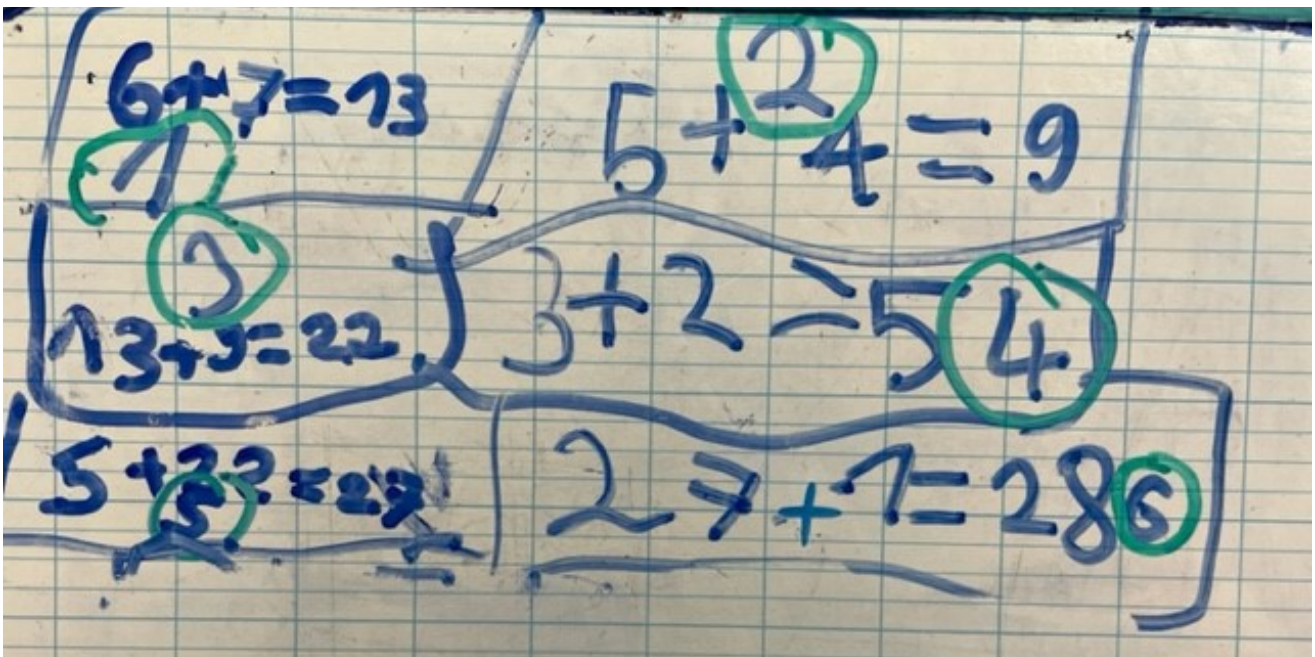 6+7=13
1
5+4=9
2
3
13+9=22
3+2=5
4
5+22=27
5
27+1=28
6